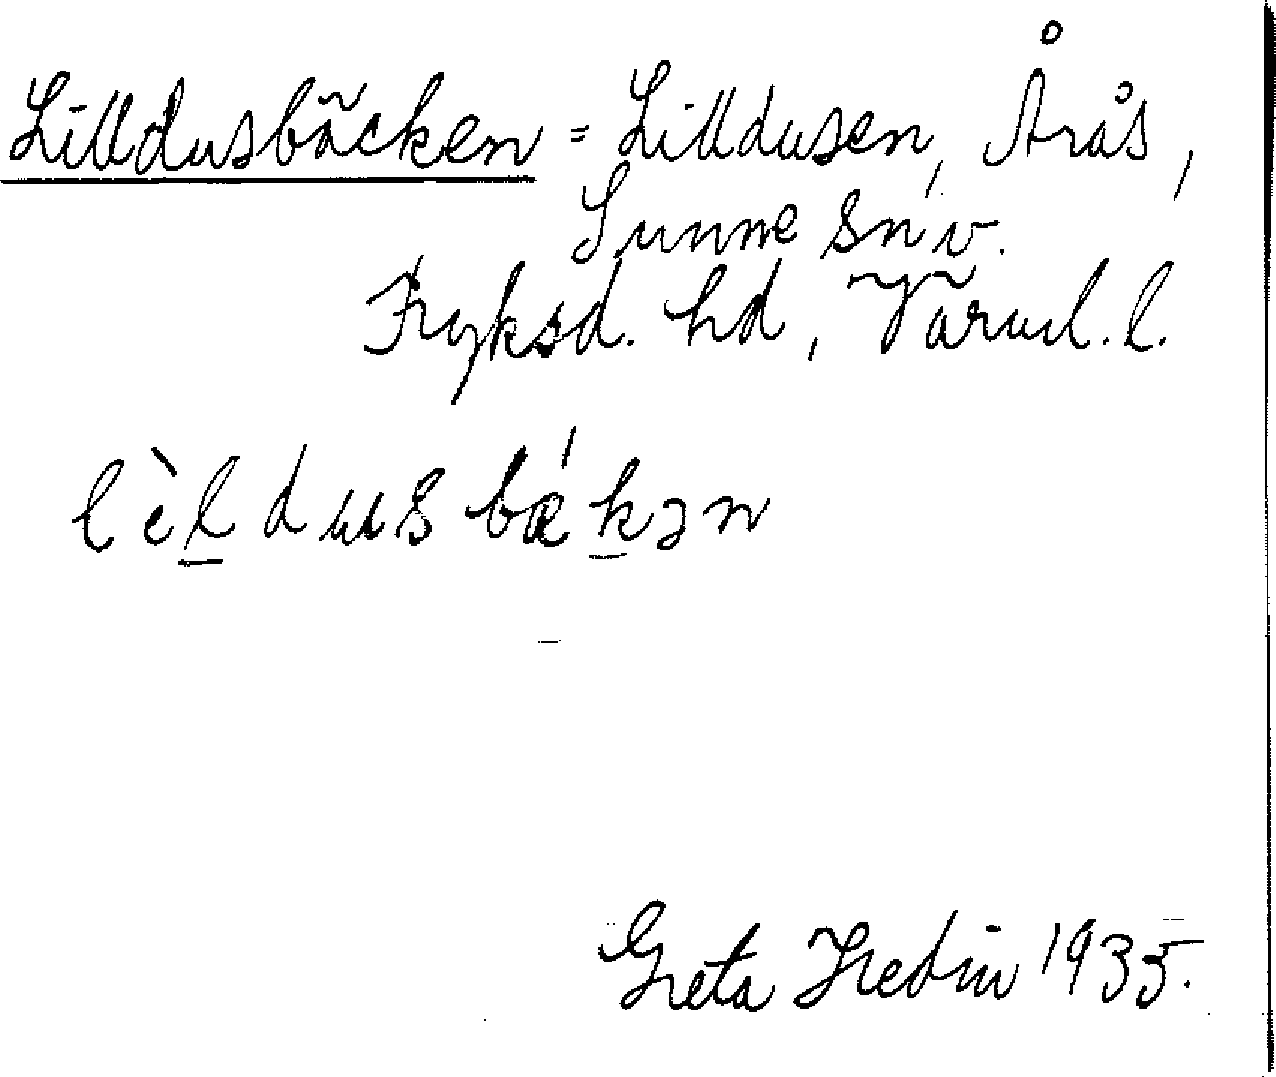 Lilldusbäcken = Lilldusen, Årås,
Sunne sn v.
Fryksd. hd, Värml. l.
lèldusbǽkən
Greta Hedin 1935.